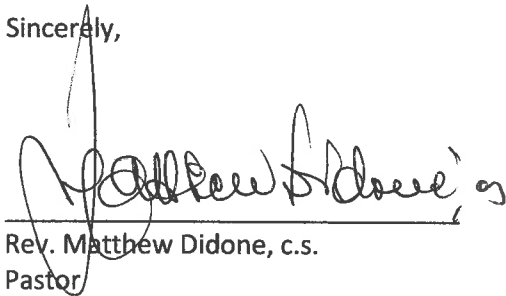 Sincerely,
Matthew Didone, cs
Rev. Matthew Didone, c.s.
Pastor